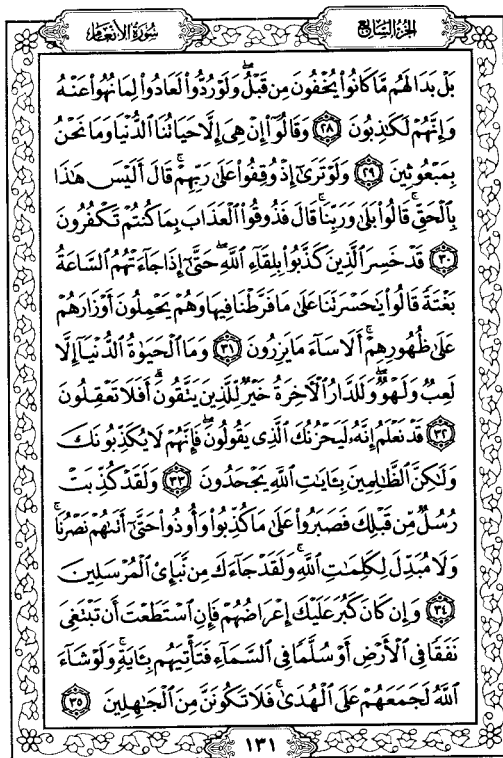 سُورَةُ الأَنْعَام
الجُزْءُ السَّابِعُ
بَلْ بَدَا لَهُم مَّا كَانُوا۟ يُخْفُونَ مِن قَبْلُ ۖ وَلَوْ رُدُّوا۟ لَعَادُوا۟ لِمَا نُهُوا۟ عَنْهُ
وَإِنَّهُمْ لَكَٰذِبُونَ ٢٨ وَقَالُوٓا۟ إِنْ هِىَ إِلَّا حَيَاتُنَا ٱلدُّنْيَا وَمَا نَحْنُ
بِمَبْعُوثِينَ ٢٩ وَلَوْ تَرَىٰٓ إِذْ وُقِفُوا۟ عَلَىٰ رَبِّهِمْ ۚ قَالَ أَلَيْسَ هَٰذَا
بِٱلْحَقِّ ۚ قَالُوا۟ بَلَىٰ وَرَبِّنَا ۚ قَالَ فَذُوقُوا۟ ٱلْعَذَابَ بِمَا كُنتُمْ تَكْفُرُونَ
٣٠ قَدْ خَسِرَ ٱلَّذِينَ كَذَّبُوا۟ بِلِقَآءِ ٱللَّهِ ۖ حَتَّىٰٓ إِذَا جَآءَتْهُمُ ٱلسَّاعَةُ
بَغْتَةً قَالُوا۟ يَٰحَسْرَتَنَا عَلَىٰ مَا فَرَّطْنَا فِيهَا وَهُمْ يَحْمِلُونَ أَوْزَارَهُمْ
عَلَىٰ ظُهُورِهِمْ ۚ أَلَا سَآءَ مَا يَزِرُونَ ٣١ وَمَا ٱلْحَيَوٰةُ ٱلدُّنْيَآ إِلَّا
لَعِبٌ وَلَهْوٌ ۖ وَلَلدَّارُ ٱلْءَاخِرَةُ خَيْرٌ لِّلَّذِينَ يَتَّقُونَ ۗ أَفَلَا تَعْقِلُونَ
٣٢ قَدْ نَعْلَمُ إِنَّهُۥ لَيَحْزُنُكَ ٱلَّذِى يَقُولُونَ ۖ فَإِنَّهُمْ لَا يُكَذِّبُونَكَ
وَلَٰكِنَّ ٱلظَّٰلِمِينَ بِـَٔايَٰتِ ٱللَّهِ يَجْحَدُونَ ٣٣ وَلَقَدْ كُذِّبَتْ
رُسُلٌ مِّن قَبْلِكَ فَصَبَرُوا۟ عَلَىٰ مَا كُذِّبُوا۟ وَأُوذُوا۟ حَتَّىٰٓ أَتَىٰهُمْ نَصْرُنَا ۚ
وَلَا مُبَدِّلَ لِكَلِمَٰتِ ٱللَّهِ ۚ وَلَقَدْ جَآءَكَ مِن نَّبَإِى۟ ٱلْمُرْسَلِينَ
٣٤ وَإِن كَانَ كَبُرَ عَلَيْكَ إِعْرَاضُهُمْ فَإِنِ ٱسْتَطَعْتَ أَن تَبْتَغِىَ
نَفَقًا فِى ٱلْأَرْضِ أَوْ سُلَّمًا فِى ٱلسَّمَآءِ فَتَأْتِيَهُم بِـَٔايَةٍ ۚ وَلَوْ شَآءَ
ٱللَّهُ لَجَمَعَهُمْ عَلَى ٱلْهُدَىٰ ۚ فَلَا تَكُونَنَّ مِنَ ٱلْجَٰهِلِينَ ٣٥
١٣١